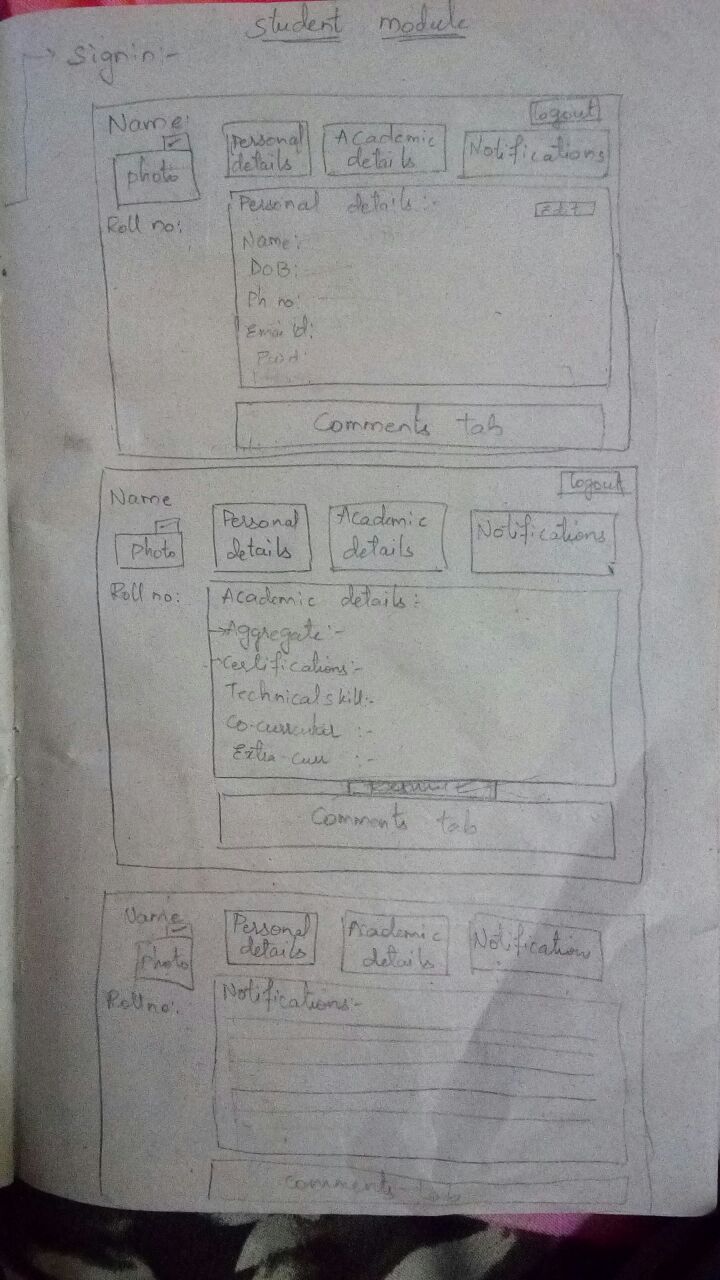 student module
Signin:-
logout
Name:
personal details
Academic details
Notifications
photo
Roll no:
Personal details:-
Edit
Name:
DOB:
Ph no:
Comments tab
logout
Name
Personal details
Academic details
Notifications
photo
Roll no:
Academic details:
Aggregate:-
Certifications:-
Technical skill:-
Co-curricular :-
Extra-curr :-
Comments tab
Name
Personal details
Academic details
Notification
photo
Roll no:
Notifications:-
comments tab